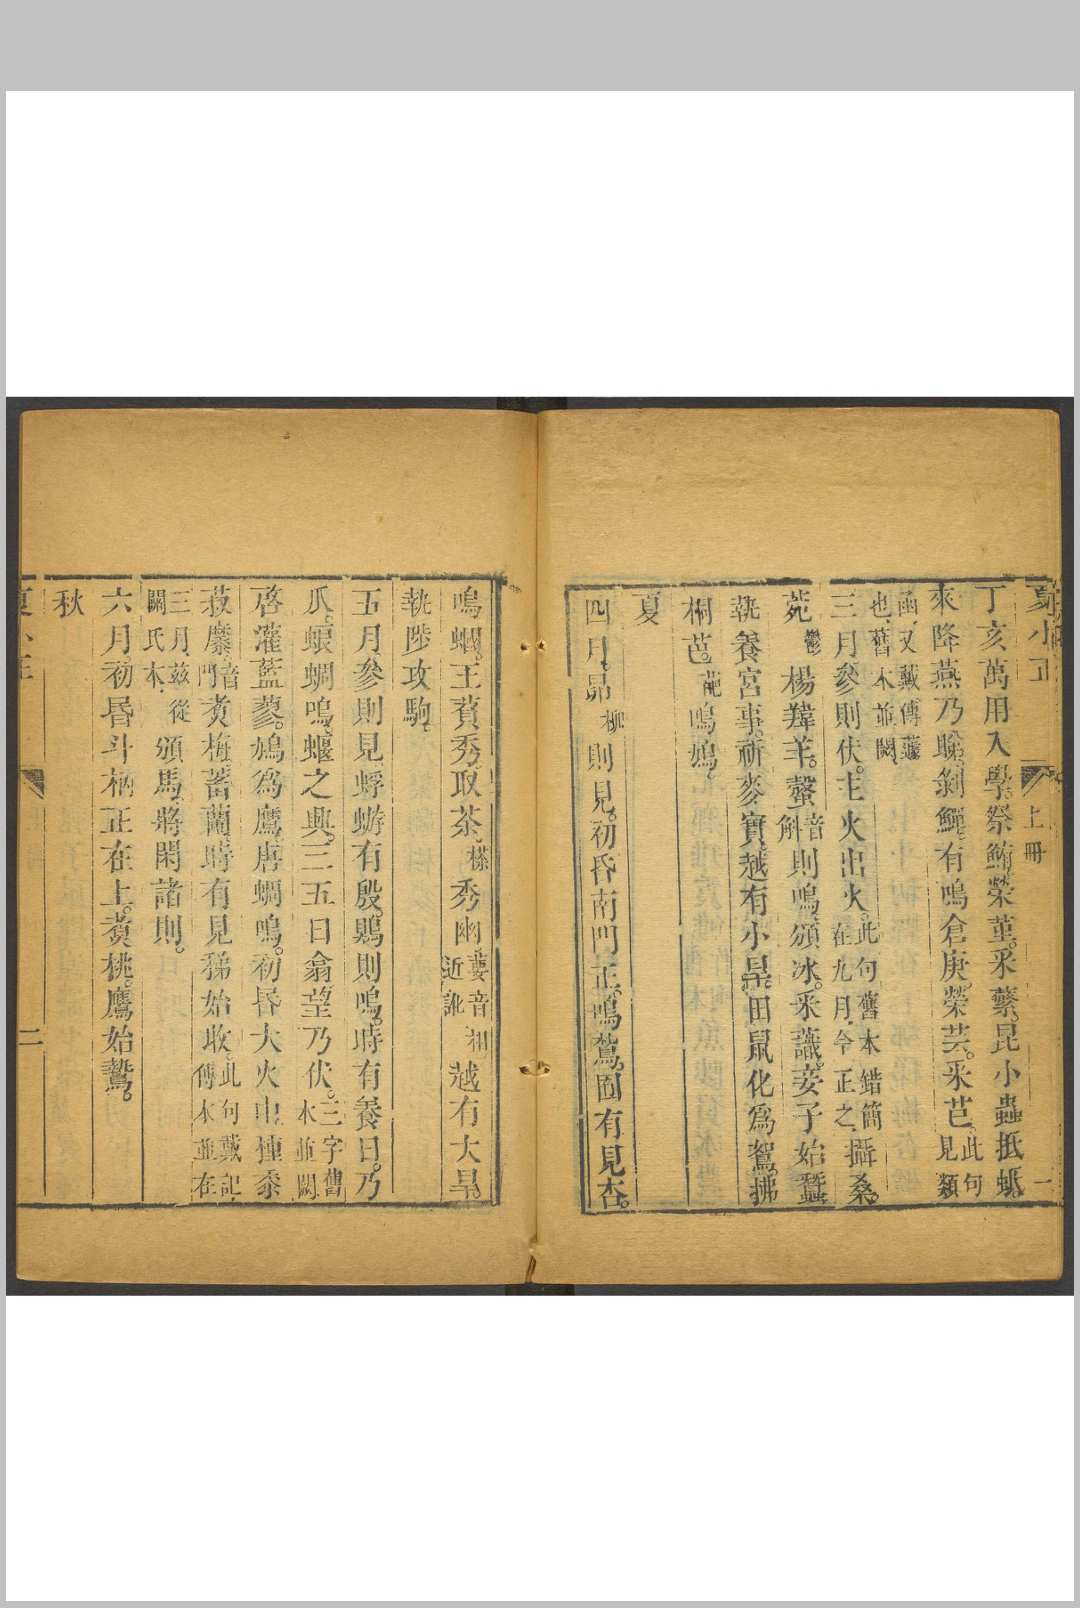 夏小正
上冊
一
丁亥萬用入學。祭鮪。榮堇。采蘩。昆小蟲抵蚳。
來降燕乃睇。剝鱓。有鳴倉庚。榮芸。采芑。此句見類
函、又戴傳蘧也、舊本並闕、
三月、參則伏。主火出火。此句舊本錯簡在九月、今正之、攝桑。
菀鬱楊。𦍩羊。螜音斛則鳴。頒冰。采䕄。妾子始蠶。
執養宮事。祈麥實。越有小旱。田鼠化為鴽。拂
桐芭。葩鳴鳩。
夏
四月、昴柳則見。初昏南門正。鳴鴽。囿有見杏。
鳴蜮。王萯秀。取荼。秀幽。葽音相近訛越有大旱。
執陟攻駒。
五月、參則見。蜉蝣有殷。鴃則鳴。時有養日。乃
瓜。蜋蜩鳴。蝘之興。三五日翕、望乃伏。三字舊本並闕
啓灌藍蓼。鳩為鷹。唐蜩鳴。初昏大火中。種黍
菽糜。音門煮梅。蓄蘭。時有見稊始收。此句戴記傳本並在
三月、茲從關氏本、頒馬。將閑諸則。
六月、初昏斗柄正在上。煮桃。鷹始鷙。
秋
二